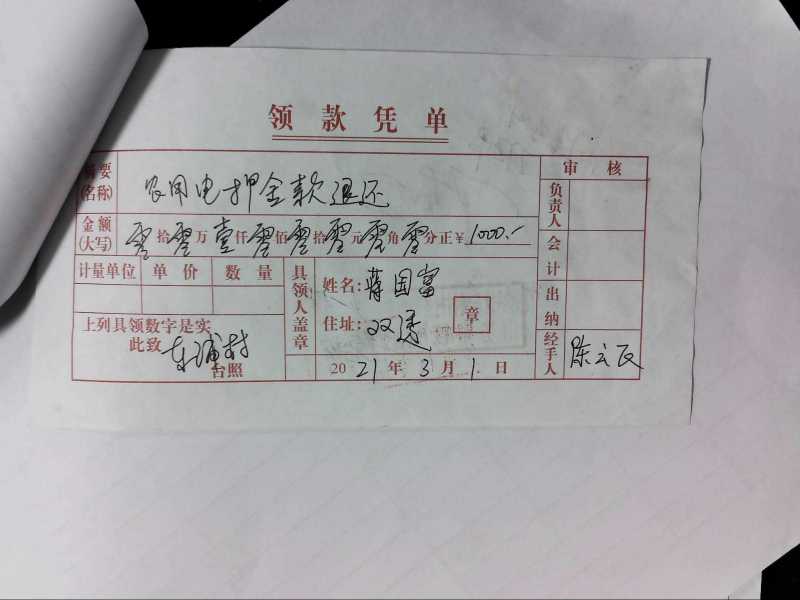 领款凭单
摘要(名称) 农用电押金款退还
审核
金额(大写) 零拾零万壹仟零佰零拾零元零角零分正¥1000.-
负责人
会计
出纳
经手人 陈云民
计量单位 单价 数量
具领人盖章
姓名: 蒋国富
住址: 双透
章
上列具领数字是实
此致 东浦村
台照
2021年3月1日